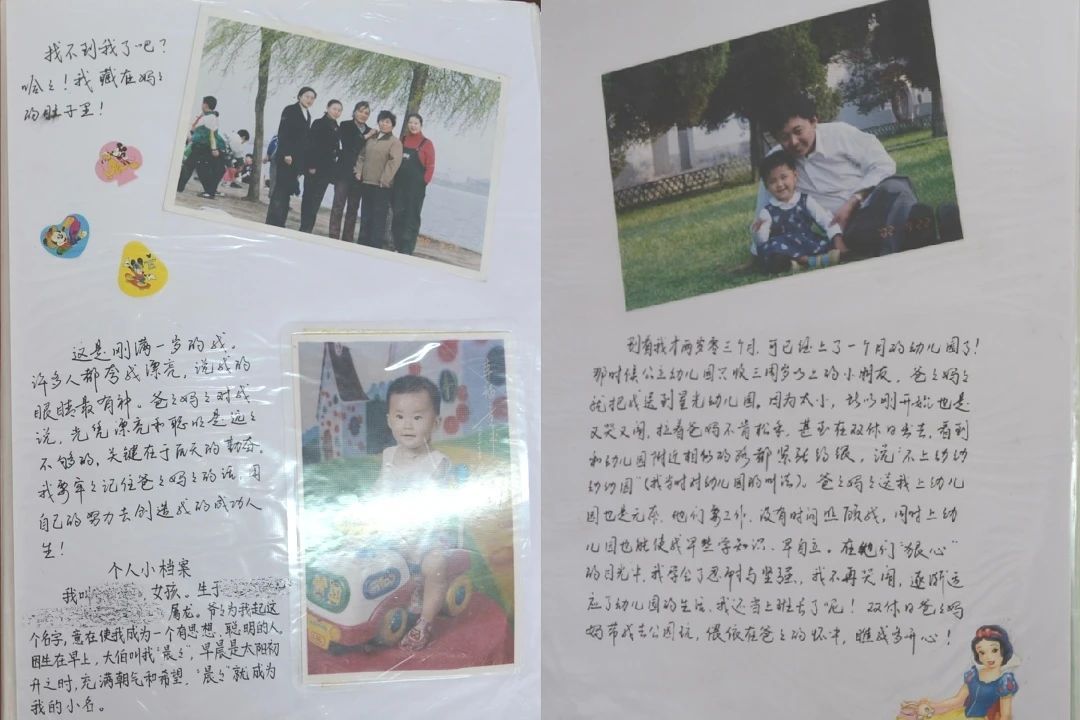 找不到我了吧？
哈々！我藏在妈々
的肚子里！
这是刚满一岁的我。
许多人都夸我漂亮，说我的
眼睛最有神。爸々妈々对我
说，光凭漂亮和聪明是远々
不够的，关键在于后天的勤奋。
我要牢々记住爸々妈々的话，用
自己的努力去创造我的成功人
生！
个人小档案
我叫 ，女孩。生于
属龙。爷々为我起这
个名字，意在使我成为一个有思想、聪明的人。
因生在早上，大伯叫我“晨々”，早晨是太阳初
升之时，充满朝气和希望，“晨々”就成为
我的小名。
别看我才两岁零三个月，可已经上了一个月的幼儿园了！
那时候公立幼儿园只收三周岁以上的小朋友，爸々妈々
就把我送到星光幼儿园。因为太小，所以刚开始也是
又哭又闹，拉着爸妈不肯松手，甚至在双休日出去，看到
和幼儿园附近相似的路都紧张得很，说“不上幼幼
幼幼园”（我当时对幼儿园的叫法）。爸々妈々送我上幼儿
园也是无奈，他们要工作，没有时间照顾我，同时上幼
儿园也能使我早些学知识、早自立。在他们“狠心”
的目光中，我学会了忍耐与坚强，我不再哭闹，逐渐适
应了幼儿园的生活，我还当上班长了呢！双休日爸々妈
妈带我去公园玩，偎依在爸々的怀中，瞧我多开心！